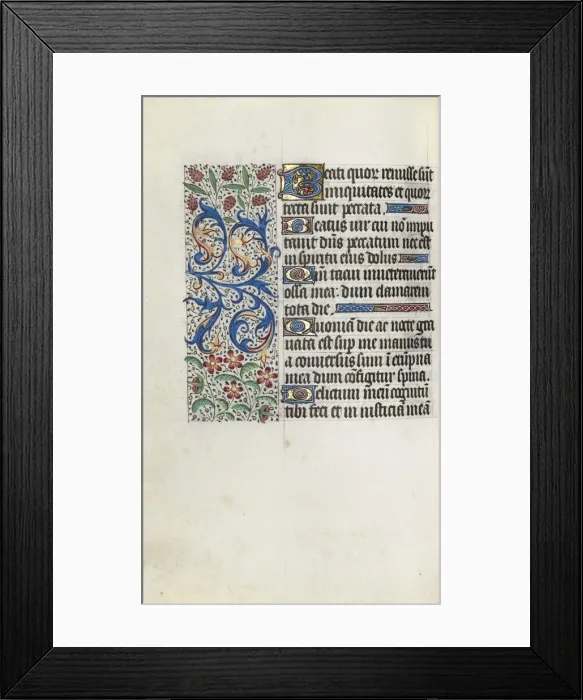 Beati quor remisse sūt
iniquitates et quor
tecta sunt peccata
Beatus vir cui nō impu
tavit dn̄s peccatum nec est
in spiritu eius dolus
Qm̄ tacui inveteraverūt
ossa mea: dum clamarem
tota die
Quoniā die ac nocte gra
vata est sup̄ me manus tu
a conversus sum ī erūpna
mea dum cōfigitur spina
Delictum meū cognitū
tibi feci et in iusticiā meā